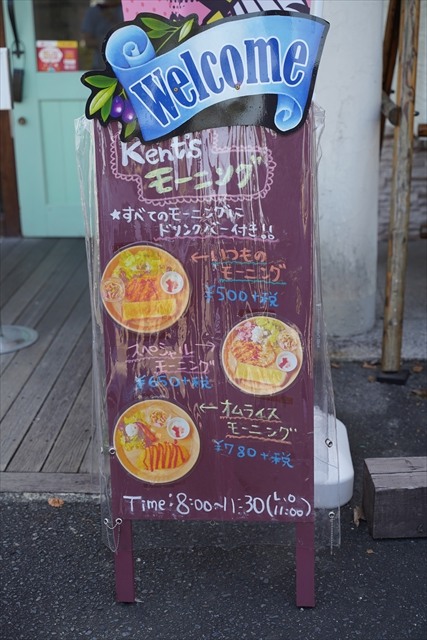 Welcome
Kent's
モーニング
★すべてのモーニングに
ドリンクバー付き!!
←いつもの
モーニング
¥500+税
スペシャル→
モーニング
¥650+税
←オムライス
モーニング
¥780+税
Time:8:00~11:30(L.O
11:00)